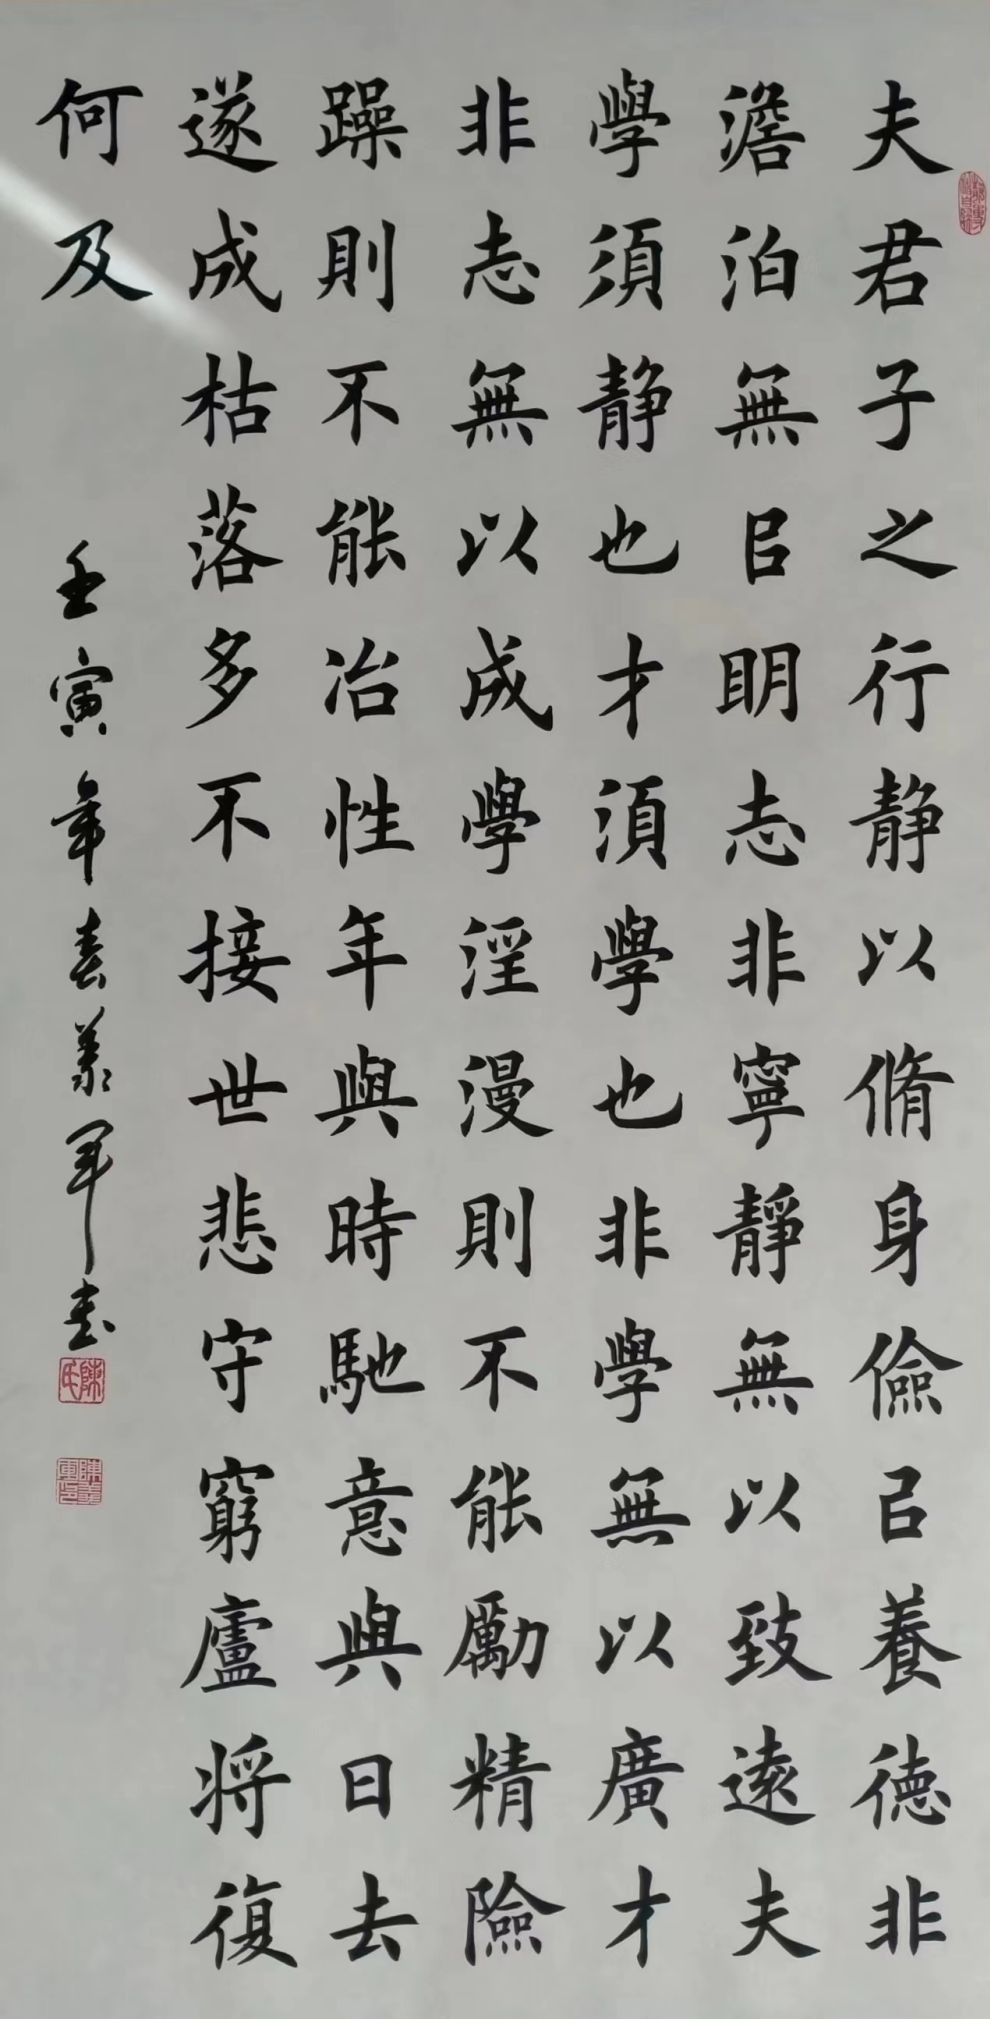 夫君子之行静以脩身儉㠯養德非
澹泊無㠯明志非寧靜無以致遠夫
學須静也才須學也非學無以廣才
非志無以成學淫漫則不能勵精險
躁則不能冶性年與時馳意與日去
遂成枯落多不接世悲守窮廬将復
何及
壬寅年春義軍书
陳氏
陳義軍印